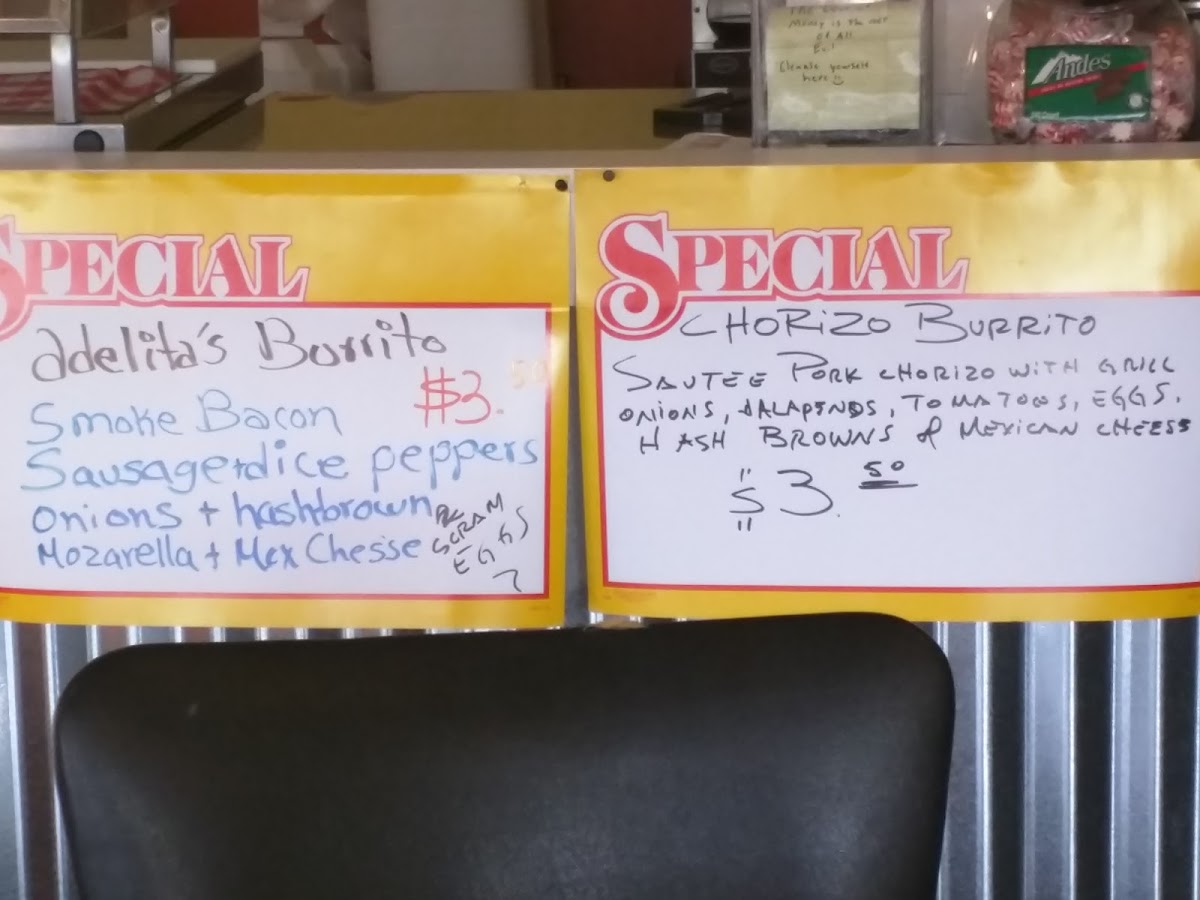 Money is the root
of All
Evil"
Elevate yourself
here ☺
Andes
SPECIAL
adelita's Burrito
$3.50
Smoke Bacon
Sausage+dice peppers
onions + hashbrown
Mozarella + Mex Chesse
SCRAM
EGGS
SPECIAL
CHORIZO BURRITO
SAUTEE PORK CHORIZO WITH GRILL
ONIONS, JALAPENOS, TOMATOES, EGGS,
HASH BROWNS & MEXICAN CHEESE
"$" 3.50